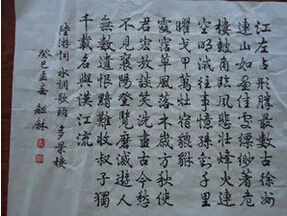 江左占形勝最數古徐州
連山如畫佳處縹緲著危
樓鼓角臨風悲壯烽火連
空明滅往事憶孫劉千里
曜戈甲萬竈宿貔貅
露霑草風落木歲方秋使
君宏放談笑洗盡古今愁
不見襄陽登覽磨滅遊人
無數遺恨黯難收叔子獨
千載名與漢江流
陸游詞 水調歌頭 多景樓
癸巳孟春